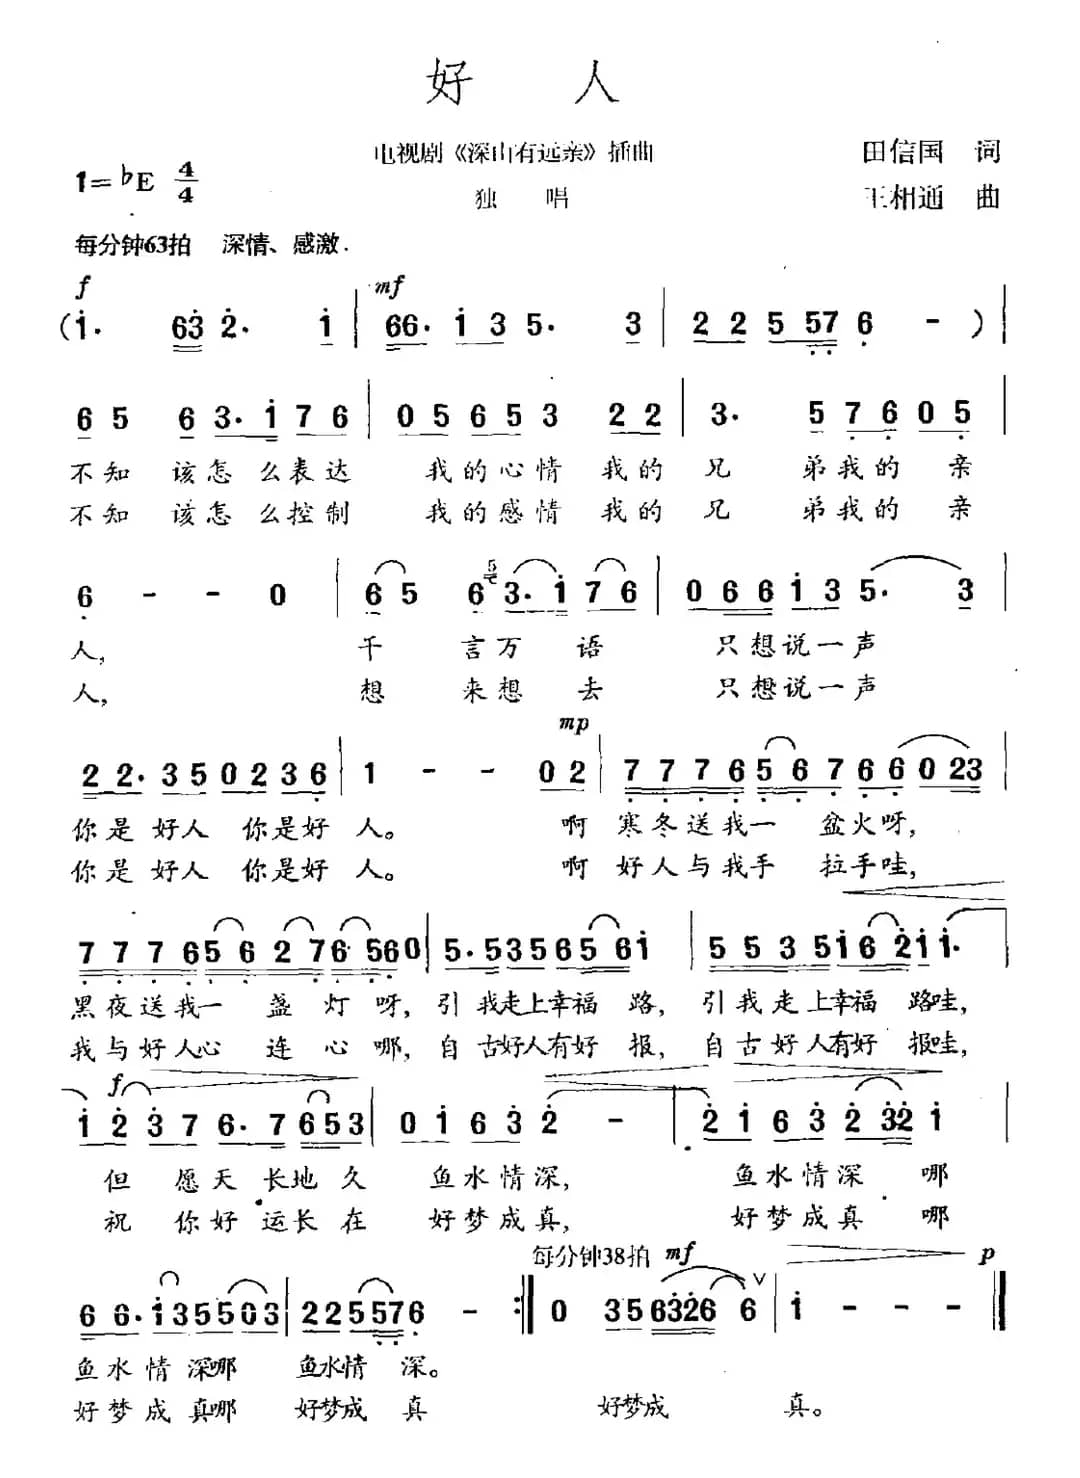 好 人
电视剧《深山有远亲》插曲
田信国 词
1=♭E 4/4
独 唱
王相通 曲
每分钟63拍 深情、感激.
f mf
(i. 63 2. i | 66. i 3 5. 3 | 2 2 5 57 6 - ) |
6 5 6 3. i 7 6 | 0 5 6 5 3 2 2 | 3. 5 7 6 0 5
不知 该怎么表达 我的心情 我的 兄 弟我的 亲
不知 该怎么控制 我的感情 我的 兄 弟我的 亲
6 - - 0 | 6 5 6 3. i 7 6 | 0 6 6 i 3 5. 3 |
人, 千 言万 语 只想说一声
人, 想 来想 去 只想说一声
mp
2 2. 3 5 0 2 3 6 | 1 - - 0 2 | 7 7 7 6 5 6 7 6 6 0 23
你是 好人 你是好 人。 啊 寒冬送我一 盆火呀,
你是 好人 你是好 人。 啊 好人与我手 拉手哇,
7 7 7 6 5 6 2 7 6 5 6 0 | 5. 5 3 5 6 5 5 6 i | 5 5 3 5 i 6 2 i i.
黑夜送我一 盏 灯 呀, 引我走上幸福 路, 引我走上幸福 路哇,
我与好人心 连 心 哪, 自古好人有好 报, 自古好人有好 报哇,
f
i 2 3 7 6. 7 6 5 3 | 0 i 6 3 2 - | 2 i 6 3 2 3 2 i |
但 愿天 长地 久 鱼水情深, 鱼水情深 哪
祝 你好 运长 在 好梦成真, 好梦成真 哪
每分钟38拍 mf p
6 6. i 3 5 5 0 3 | 2 2 5 5 7 6 - :| 0 3 5 6 3 2 6 6 ∨ | i - - - ||
鱼水 情 深哪 鱼水情 深。
好梦 成 真哪 好梦成 真 好梦成 真。